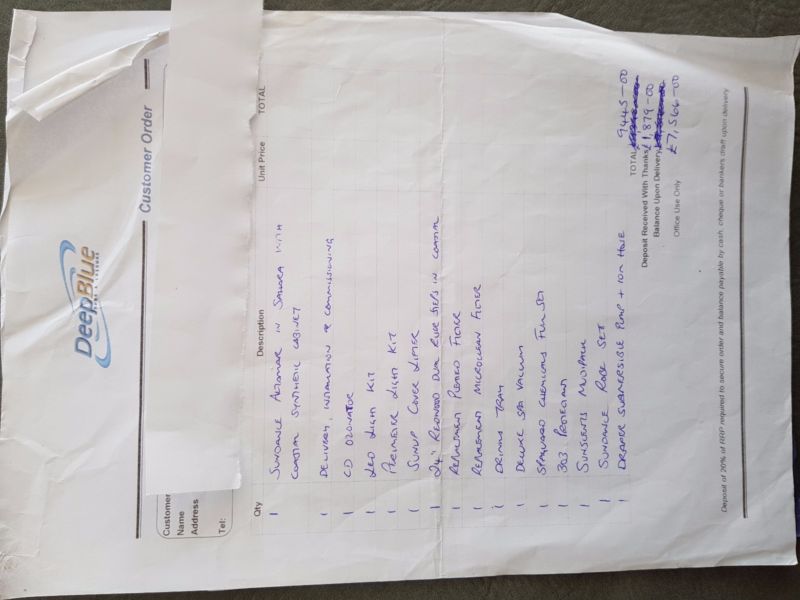 DeepBlue
Customer Order
Customer
Name
Address
Tel:
Qty Description Unit Price TOTAL
1 SUNDANCE ALTAMAR IN SAHARA WITH
COASTAL SYNTHETIC CABINET
1 DELIVERY, INSTALLATION & COMMISSIONING
1 CD OZONATOR
1 LED LIGHT KIT
1 PERIMETER LIGHT KIT
1 SUNUP COVER LIFTER
1 24" REDWOOD DURA RISER STEPS IN COASTAL
1 REPLACEMENT PLEATED FILTER
1 REPLACEMENT MICROCLEAN FILTER
1 DRINKS TRAY
1 DELUXE SPA VACUUM
1 STANDARD CHEMICALS FUN SET
1 303 PROTECTANT
1 SUNSCENTS MULTIPACK
1 SUNDANCE ROBE SET
1 DRAPER SUBMERSIBLE PUMP + 10M HOSE
TOTAL 9445-00
Deposit Received With Thanks £1,879-00
Balance Upon Delivery
£7,566-00
Office Use Only
Deposit of 20% of RRP required to secure order and balance payable by cash, cheque or bankers draft upon delivery